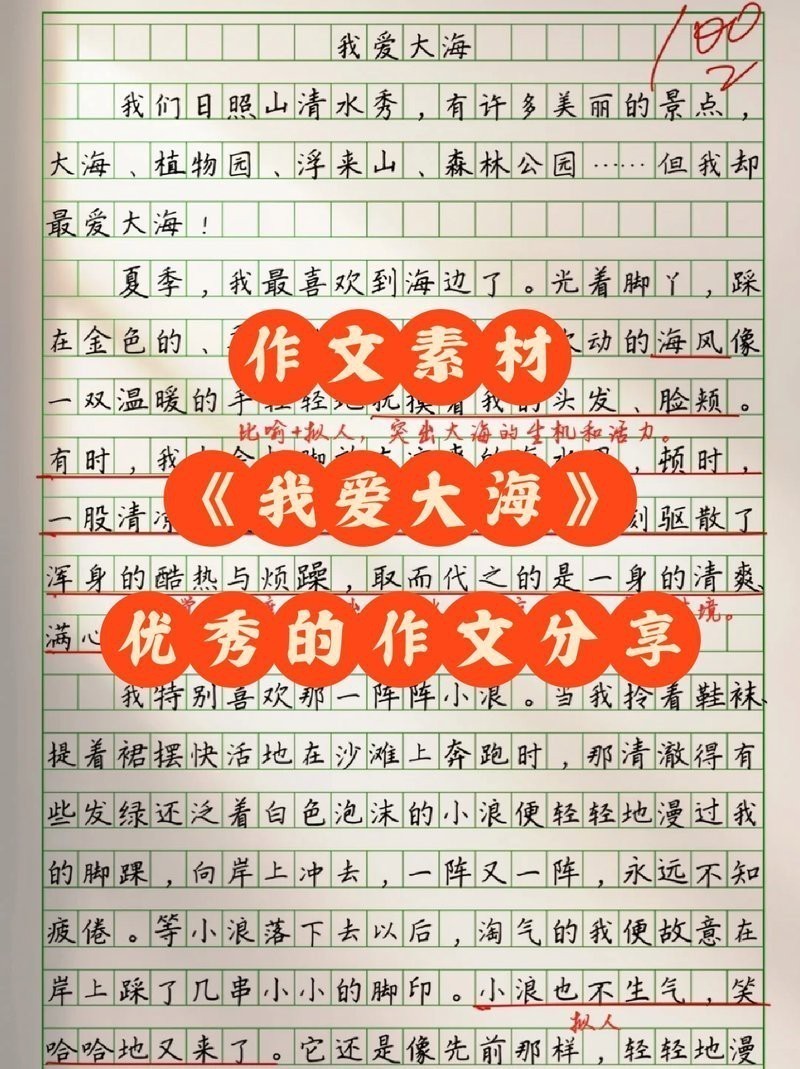 我爱大海
100
我们日照山清水秀，有许多美丽的景点，
大海、植物园、浮来山、森林公园……但我却
最爱大海！
夏季，我最喜欢到海边了。光着脚丫，踩
在金色的、 动的海风像
作文素材
一双温暖的手轻轻地抚摸着我的头发、脸颊。
比喻+拟人，突出大海的生机和活力。
有时，我 顿时，
《我爱大海》
一股清凉 刻驱散了
浑身的酷热与烦躁，取而代之的是一身的清爽、
境。
满心
优秀的作文分享
我特别喜欢那一阵阵小浪。当我拎着鞋袜、
提着裙摆快活地在沙滩上奔跑时，那清澈得有
些发绿还泛着白色泡沫的小浪便轻轻地漫过我
的脚踝，向岸上冲去，一阵又一阵，永远不知
疲倦。等小浪落下去以后，淘气的我便故意在
岸上踩了几串小小的脚印。小浪也不生气，笑
拟人
哈哈地又来了。它还是像先前那样，轻轻地漫